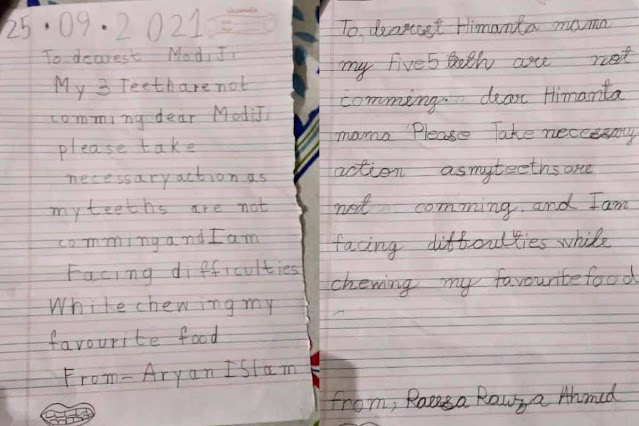 25.09.2021
To dearest ModiJi
My 3 Teeth are not
comming dear ModiJi
please take
necessary action as
my teeths are not
comming and I am
Facing difficulties
While chewing my
favourite food
From - Aryan ISlam
To, dearest Himanta mama
my five 5 teeth are not
comming. dear Himanta
mama Please Take neccessary
action as my teeths are
not comming. and I am
facing difficulties while
chewing my favourite food
from, Raeesa Rawza Ahmed